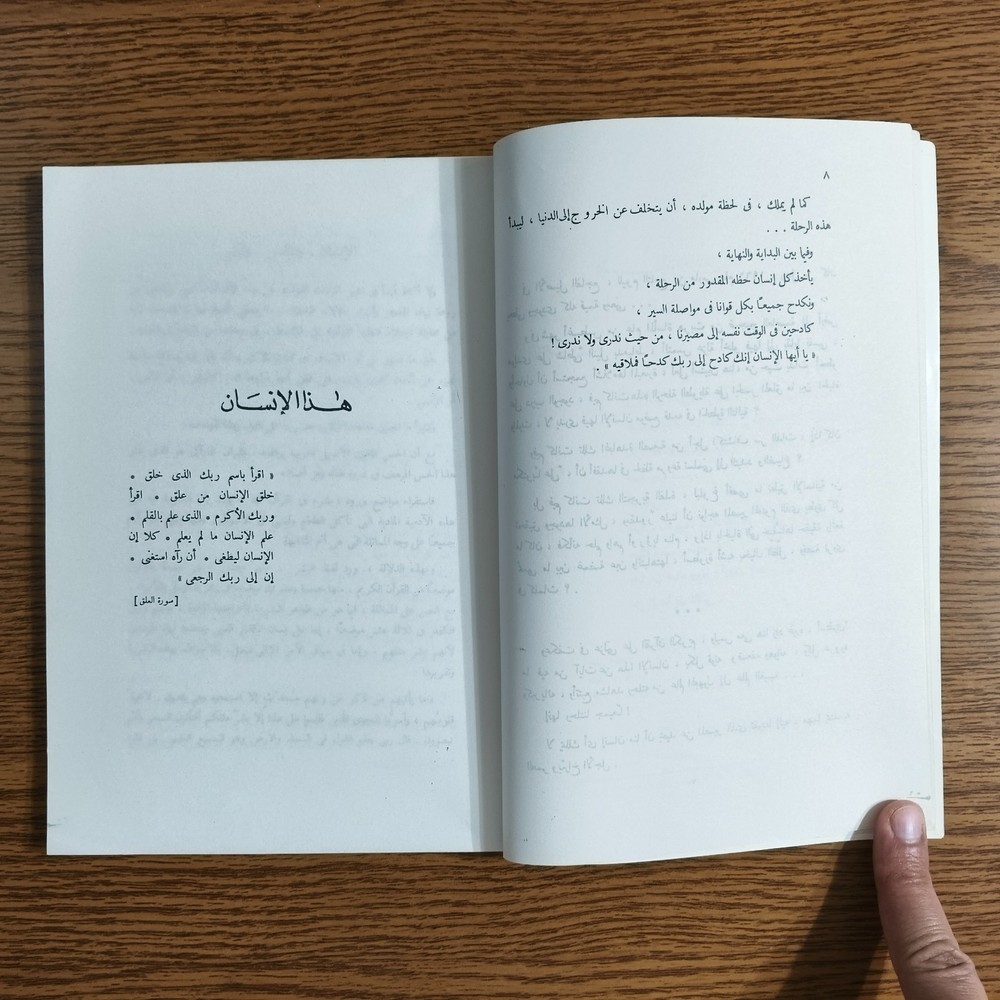 ٨
كما لم يملك ، فى لحظة مولده ، أن يتخلف عن الخروج إلى الدنيا ، ليبدأ
هذه الرحلة . . .
وفيما بين البداية والنهاية ،
يأخذ كل إنسان حظه المقدور من الرحلة ،
ونكدح جميعًا بكل قوانا فى مواصلة السير ،
كادحين فى الوقت نفسه إلى مصيرنا ، من حيث ندرى ولا ندرى !
« يا أيها الإنسان إنك كادح إلى ربك كدحًا فملاقيه » .
هذا الإنسَان
« اقرأ باسم ربك الذى خلق *
خلق الإنسان من علق * اقرأ
وربك الأكرم * الذى علم بالقلم *
علم الإنسان ما لم يعلم * كلا إن
الإنسان ليطغى * أن رآه استغنى *
إن إلى ربك الرجعى »
[سورة العلق]